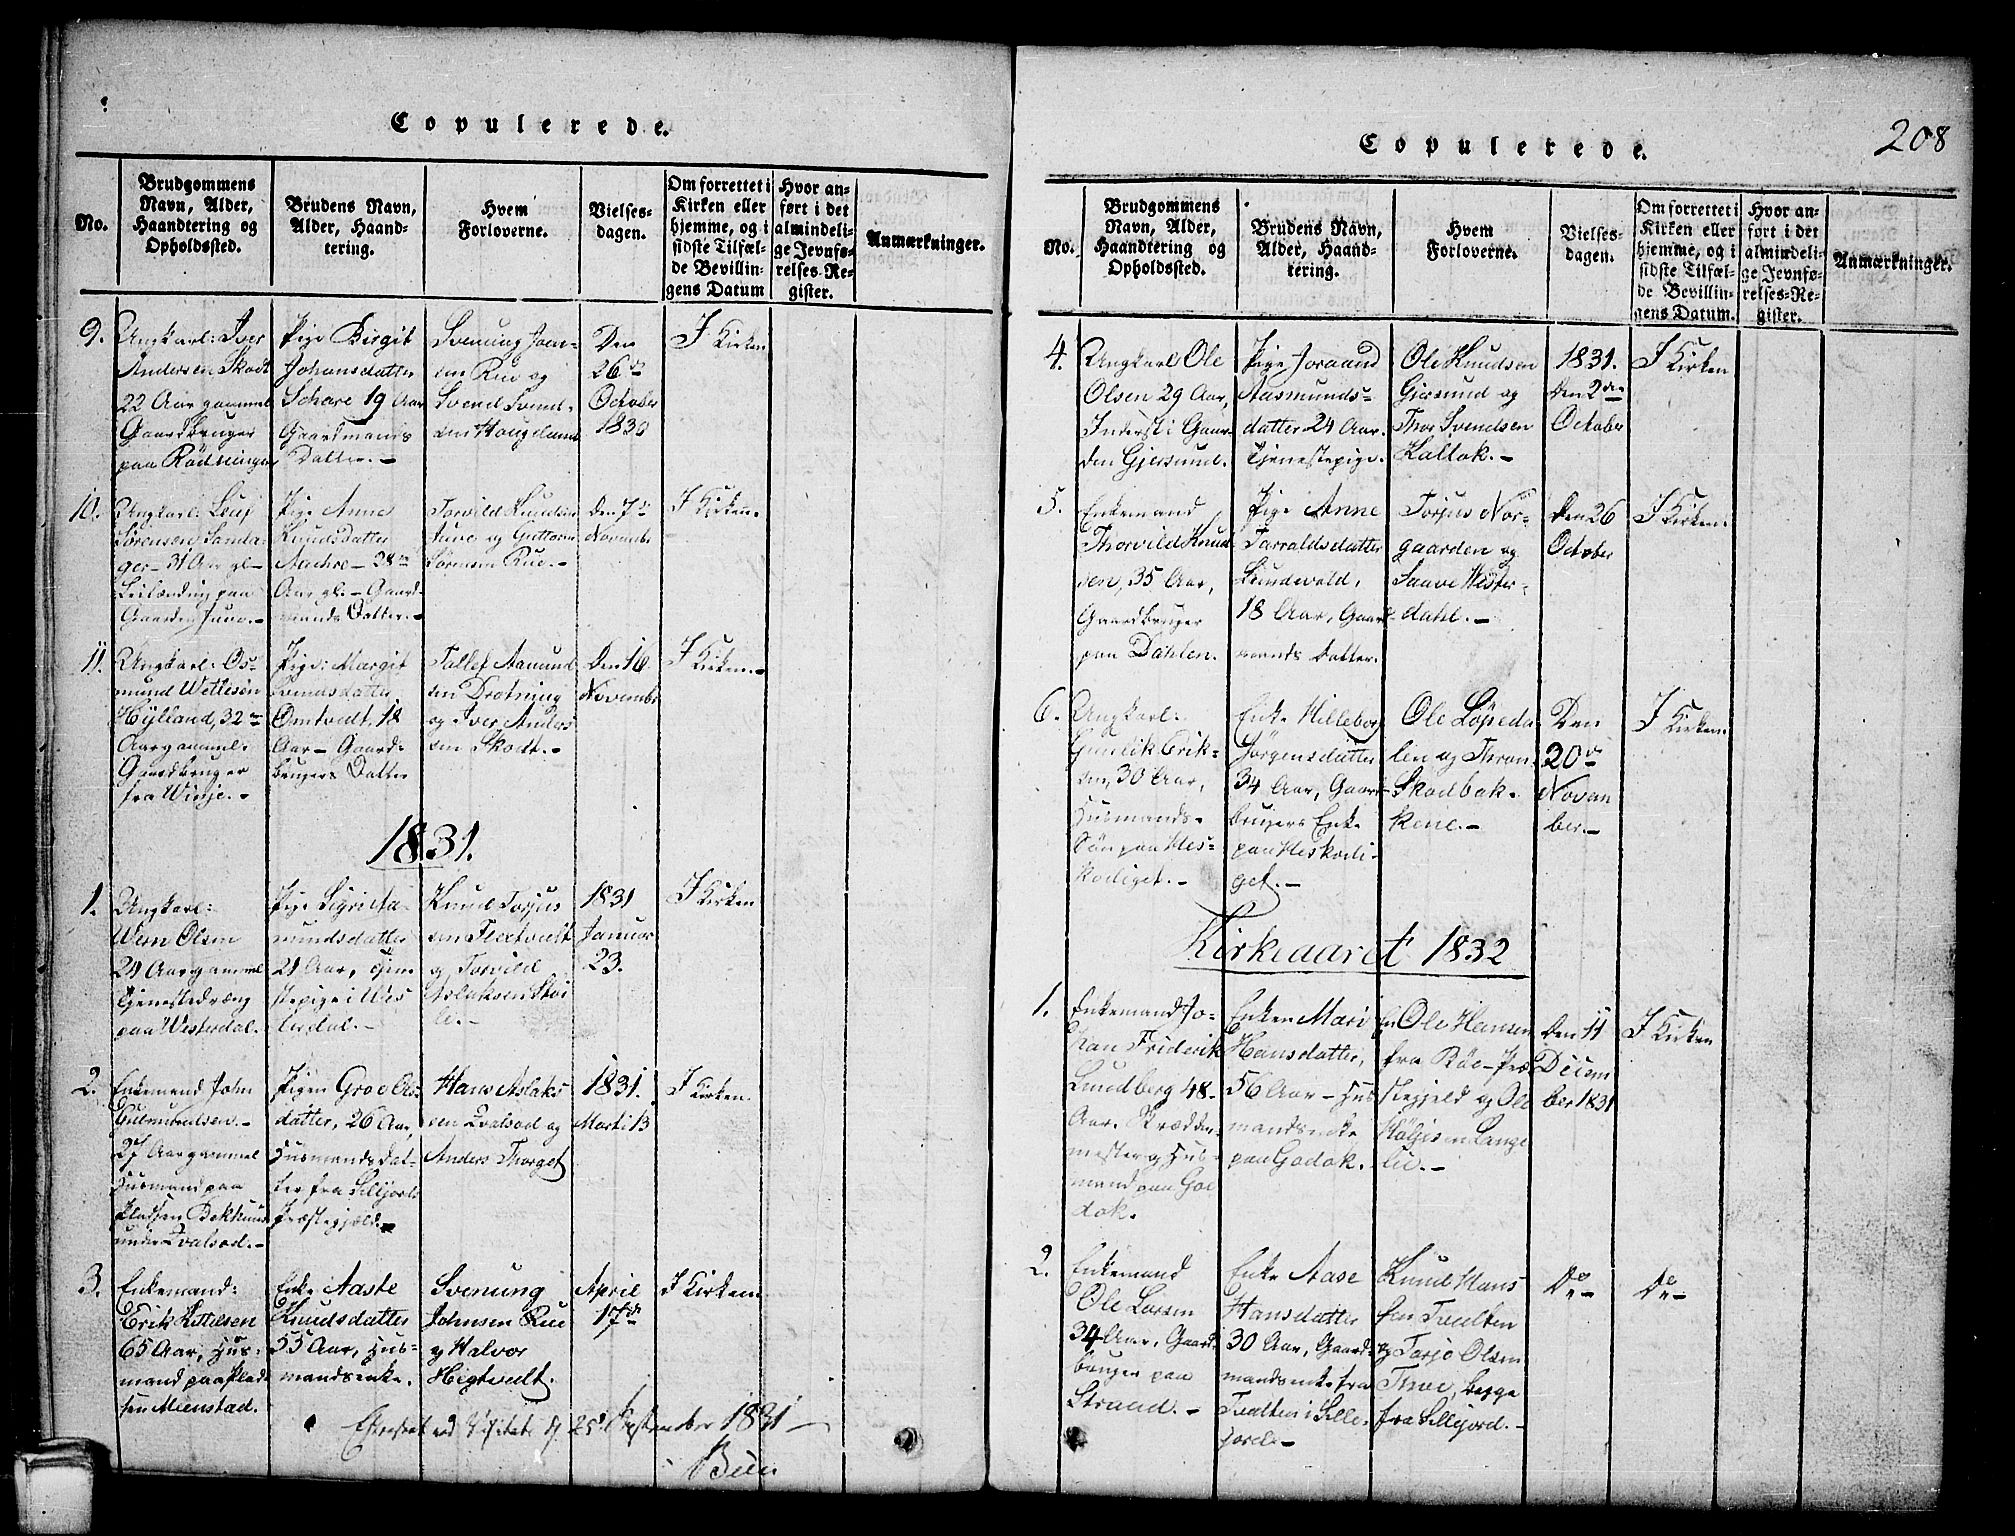 Copulerede.
No.
Brudgommens
Navn, Alder,
Haandtering og
Opholdssted.
Brudens Navn,
Alder, Haand-
tering.
Hvem
Forloverne.
Vielses-
dagen.
Om forrettet i
Kirken eller
hjemme, og i
sidste Tilfæl-
de Bevillin-
gens Datum
Hvor an-
ført i det
almindeli-
ge Jevnfø-
relses-Re-
gister.
Anmærkninger.
9.
Ungkarl: Iver
Andersen Skodt
22 Aar gammel
Gaardbruger
paa Rødningen
Pige Birgit
Johansdatter
Schare 19 Aar
Gaardmands
Datter.-
Svenung John-
sen Rue og
Svend Svend-
sen Haugelund
Den
26de
October
1830
I Kirken
10.
Ungkarl: Leuf
Sørensen Sanda-
ger- 31 Aar gl-
Leilænding paa
Gaarden Juve.-
Pige Anne
Knudsdatter
Aachre- 28
Aar gl.- Gaard-
mands Datter.-
Torvild Knudsen
Juve og Guttorm
Sørensen Rue.-
Den 7de
Novembr
I Kirken.
11.
Ungkarl: Os-
mund Wetlesen
Hylland, 32
Aar gammel
Gaardbruger
fra Winje.-
Pige: Margit
Svendsdatter
Omtvedt 18
Aar- Gaard-
brugers Datter
Tallef Aamund
sen Drotning
og Iver Anders
sen Skodt.-
Den 16
Novembr
I Kirken.-
1831.
1.
Ungkarl:
Wern Olsen
24 Aar gammel
Tjenestedræng
paa Westerdal.
Pige Sigri Aa-
mundsdatter
21 Aar, Tjen
stepige i Wes
terdal.-
Knud Torjus
sen Flextvedt
og Torvild
Aslaksen Skoi
e.-
1831
Januar
23.
I Kirken
2.
Enkemand John
Gulmundsen.-
27 Aar gammel
Husmand paa
Pladsen Bekhuus
under Qvalsod.-
Pigen Groe Ols
datter, 26 Aar,
Husmands Dat-
ter fra Sillejords
Præstegjæld.
Hans Aslaks
sen Qvalsod og
Anders Thorget
1831.
Marti 13
I Kirken.
3.
Enkemand:
Erik Kittelsen
65 Aar, Hus-
mand paa Plad
sen Meenstad.
Enke Aaste
Knudsdatter
55 Aar, Hus-
mandsenke.
Svenung
Johnsen Rue
og Halvor
Higtvedt.
April
17de
I Kirken
Efterseet ved Visitats d. 25de September 1831-
208
Copulerede.
No.
Brudgommens
Navn, Alder,
Haandtering og
Opholdssted.
Brudens Navn,
Alder, Haand-
tering.
Hvem
Forloverne.
Vielses-
dagen.
Om forrettet i
Kirken eller
hjemme, og i
sidste Tilfæl-
de Bevillin-
gens Datum.
Hvor an-
ført i det
almindeli-
ge Jevnfø-
relses-Re-
gister.
Anmærkninger.
4.
Ungkarl Ole
Olsen 29 Aar,
Inderst i Gaar-
den Gjersund.
Pige Joraand
Aasmunds-
datter 24 Aar.
Tjenestepige.
Ole Knudsen
Gjersund og
Thor Svendsen
Kaltok.-
1831.
Den 2den
October
I Kirken
5.
Enkemand
Thorvild Knud-
sen, 35 Aar,
Gaardbruger
paa Dahlen.
Pige Anne
Tarraldsdatter
Lundevald,
18 Aar, Gaard-
mands Datter.
Torjus Nor-
gaarden og
Saave Wester-
dahl.-
Den 26
October
I Kirken.
6.
Ungkarl:
Gunlik Erik-
sen, 30 Aar,
Husmands-
Søn paa Hes-
kodiget.-
Enke Hilleborg
Jørgensdatter
34 Aar, Gaard-
brugers Enke
paa Heskodi-
get.-
Ole Løpeda
len og Thron
Skodbak-
kene.-
Den
20de
Novem
ber.-
I Kirken.
Kirkeaaret 1832
1.
Enkemand Jo-
han Friderik
Lundberg 48-
Aar. Skrædder-
mester og Hus-
mand paa Goe
dok.
Enken Mari
Hansdatter,
56 Aar- Hus
mandsenke
paa Godok.
Ole Hansen
fra Bøe-Præ
stegjeld og Ole
Høljesen Lange
lie.-
Den 11
Decem
ber 1831
I Kirken
2.
Enkemand
Ole Larsen
34 Aar, Gaard-
bruger paa
Straad.-
Enke Aase
Hansdatter
30 Aar, Gaard-
mandsenke fra
Tvedten i Sille-
jord.-
Knud Hans
sen Tvedten
og Tarje Olsen
Thve, begge
fra Sillejord.-
Do-
Do-